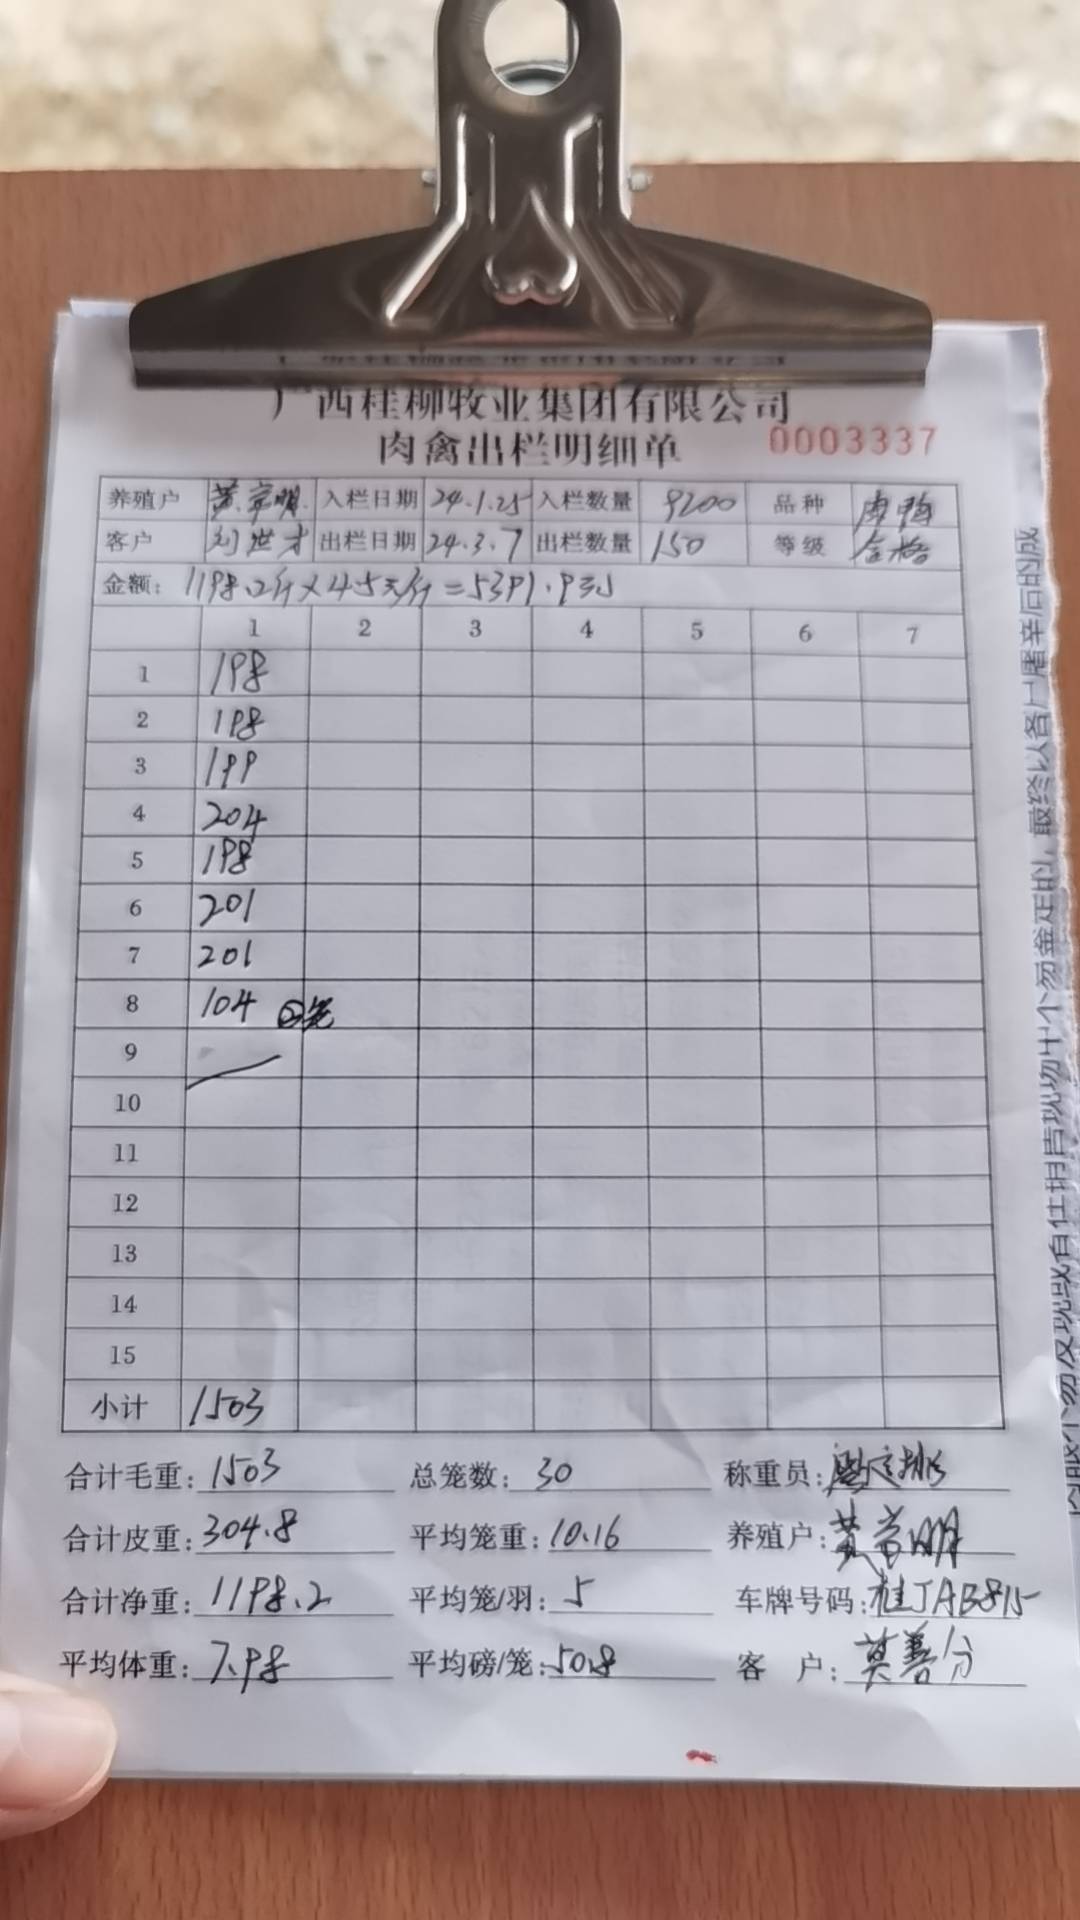 广西桂柳牧业集团有限公司
肉禽出栏明细单 0003337
养殖户 入栏日期 24.1.25 入栏数量 9200 品种
客户 刘世才 出栏日期 24.3.7 出栏数量 150 等级 合格
金额: 1198.2斤×4.5元/斤=5391.9元
1 2 3 4 5 6 7
1 198
2 198
3 199
4 204
5 198
6 201
7 201
8 104 ②笼
9
10
11
12
13
14
15
小计 1503
合计毛重: 1503 总笼数: 30 称重员:
合计皮重: 304.8 平均笼重: 10.16 养殖户:
合计净重: 1198.2 平均笼/羽: 5 车牌号码: 桂JAB815
平均体重: 7.98 平均磅/笼: 50.8 客 户: 莫善分